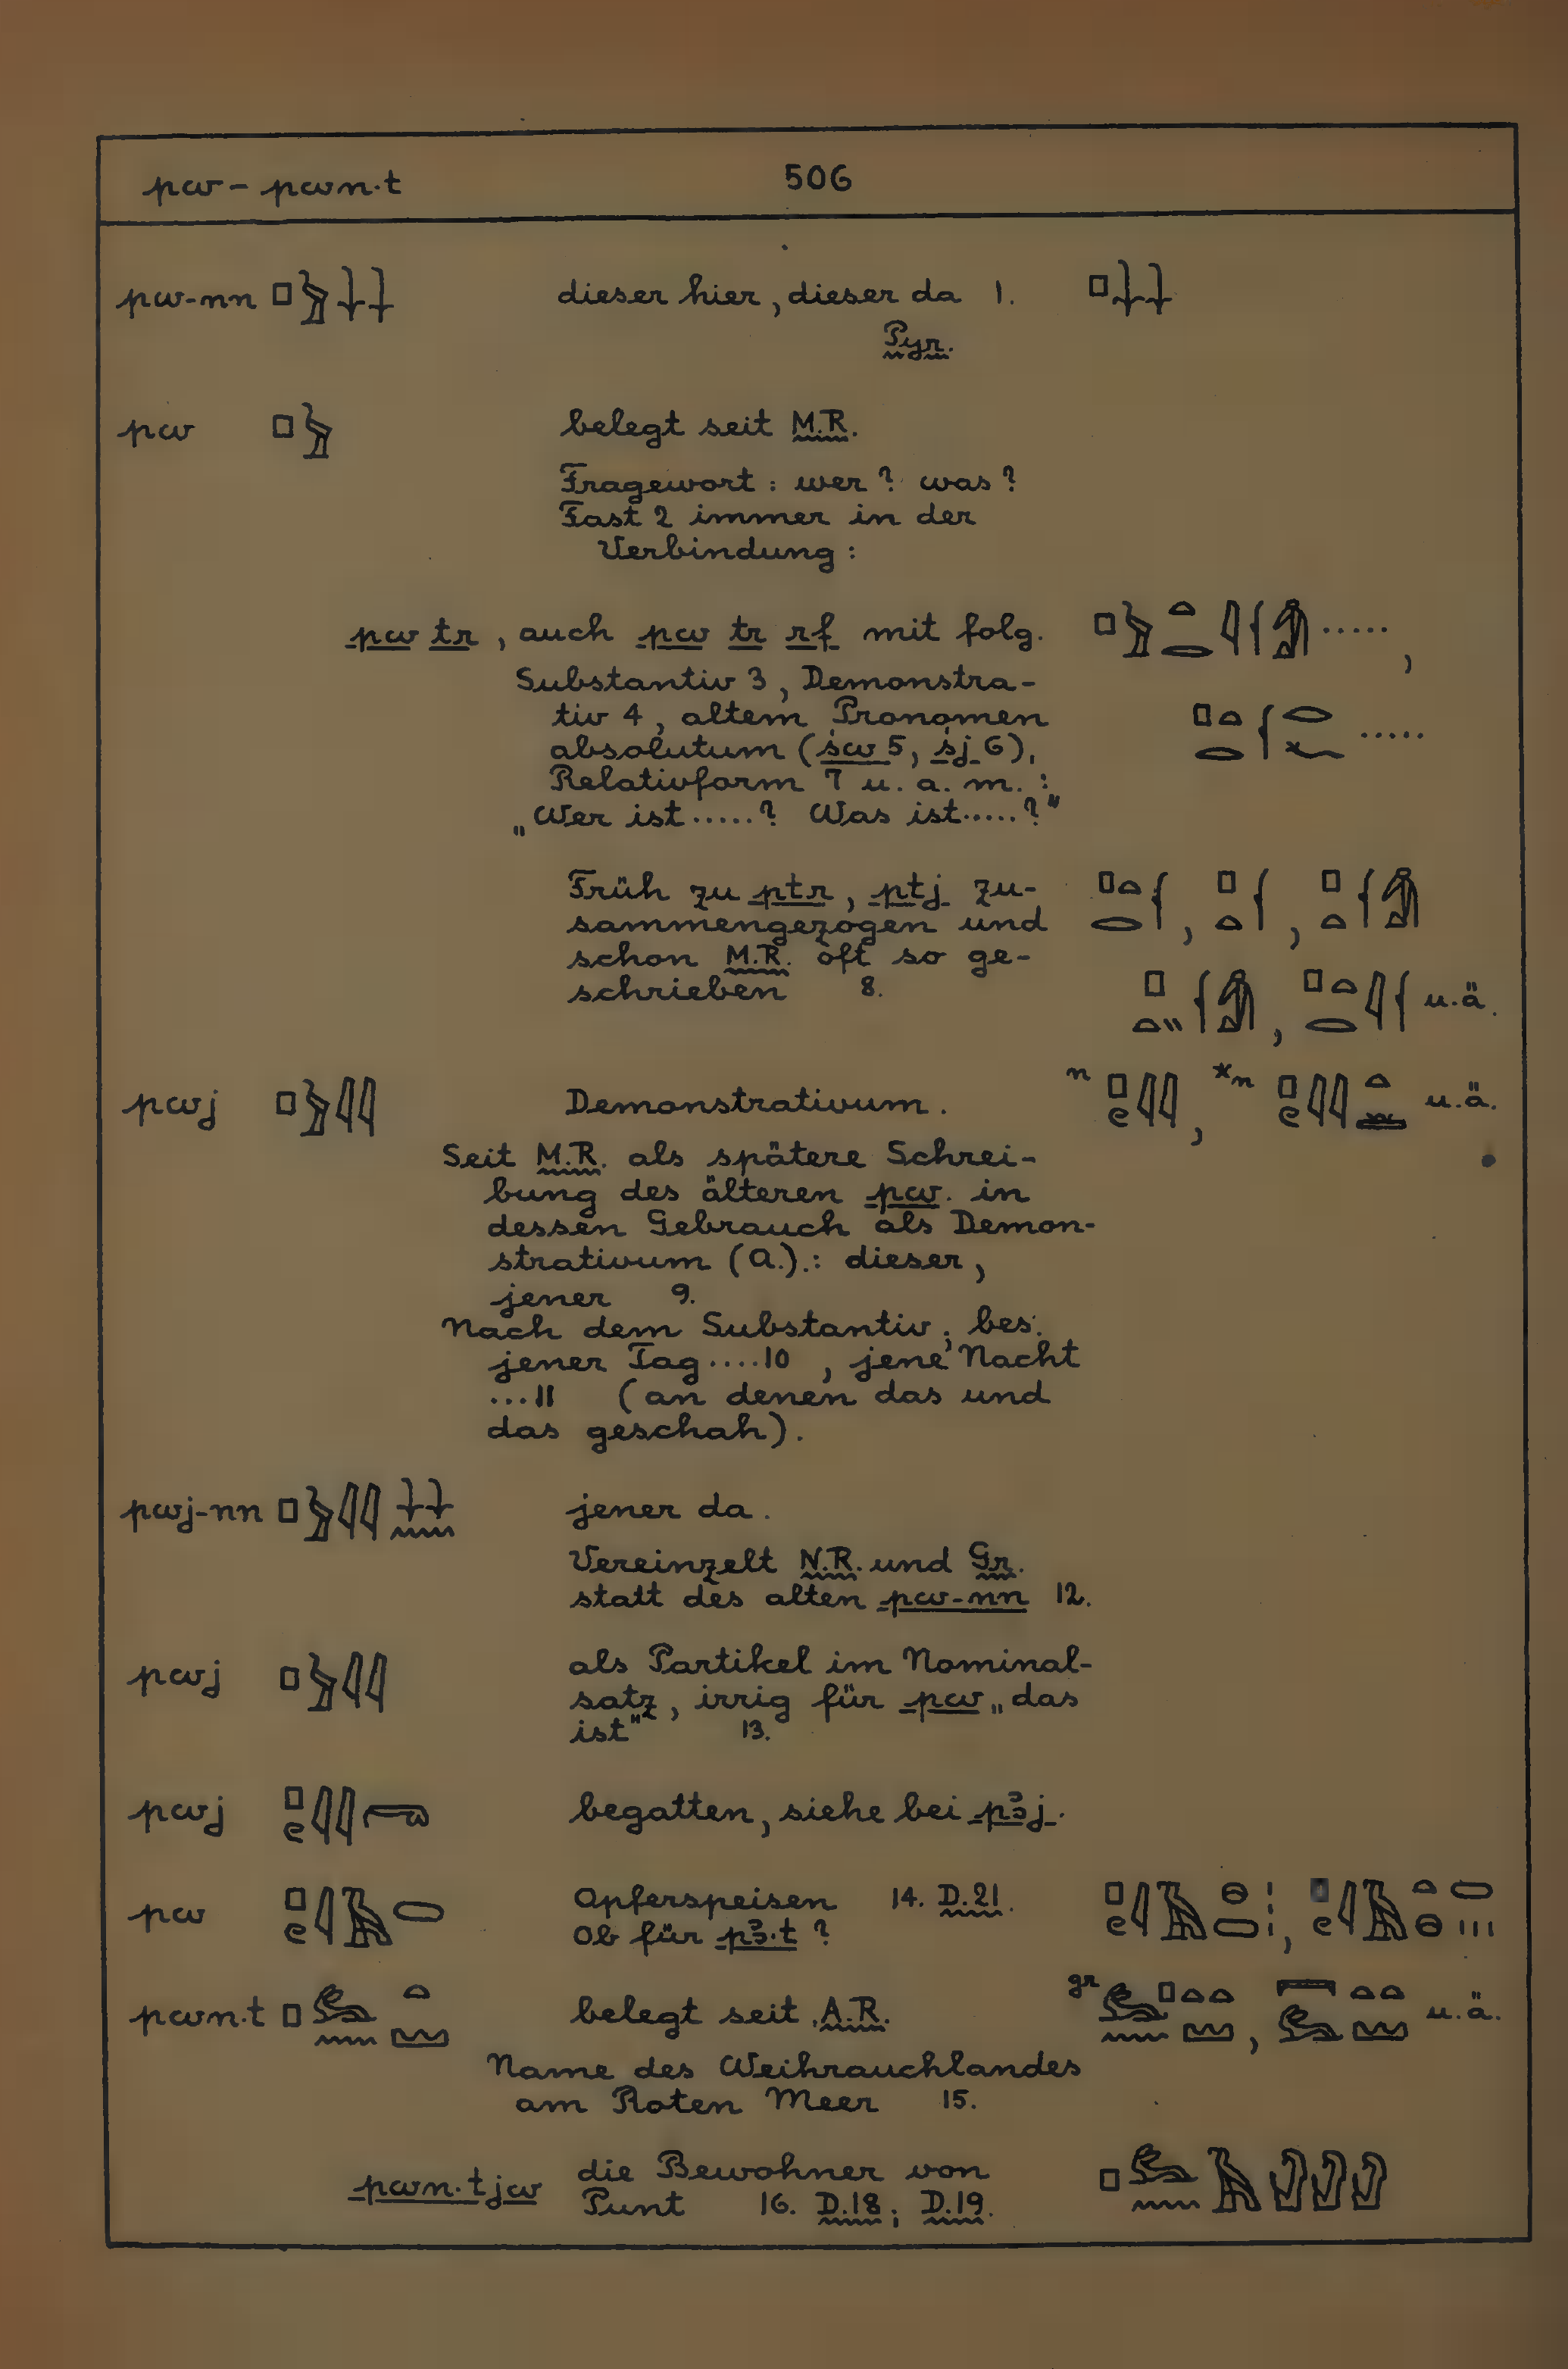 pw – pwn·t 506
pw-nn dieser hier, dieser da 1.
Pyr.
pw belegt seit M.R.
Fragewort: wer? was?
Fast 2 immer in der
Verbindung:
pw tr, auch pw tr rf mit folg.
Substantiv 3, Demonstra-
tiv 4, altem Pronomen
absolutum (św 5, śj 6),
Relativform 7 u. a. m. :
„Wer ist .....? Was ist .....?"
Früh zu ptr, ptj zu-
sammengezogen und
schon M.R. oft so ge-
schrieben 8.
u.ä.
pwj Demonstrativum. n , *n u.ä.
Seit M.R. als spätere Schrei-
bung des älteren pw. in
dessen Gebrauch als Demon-
strativum (A.).: dieser,
jener 9.
Nach dem Substantiv, bes.
jener Tag ....10 , jene Nacht
...11 (an denen das und
das geschah).
pwj-nn jener da.
Vereinzelt N.R. und Gr.
statt des alten pw-nn 12.
pwj als Partikel im Nominal-
satz, irrig für pw „das
ist" 13.
pwj begatten, siehe bei pꜣj.
pw Opferspeisen 14. D.21.
Ob für pꜣ·t ?
pwn·t belegt seit A.R. gr , u.ä.
Name des Weihrauchlandes
am Roten Meer 15.
pwn·tjw die Bewohner von
Punt 16. D.18; D.19.